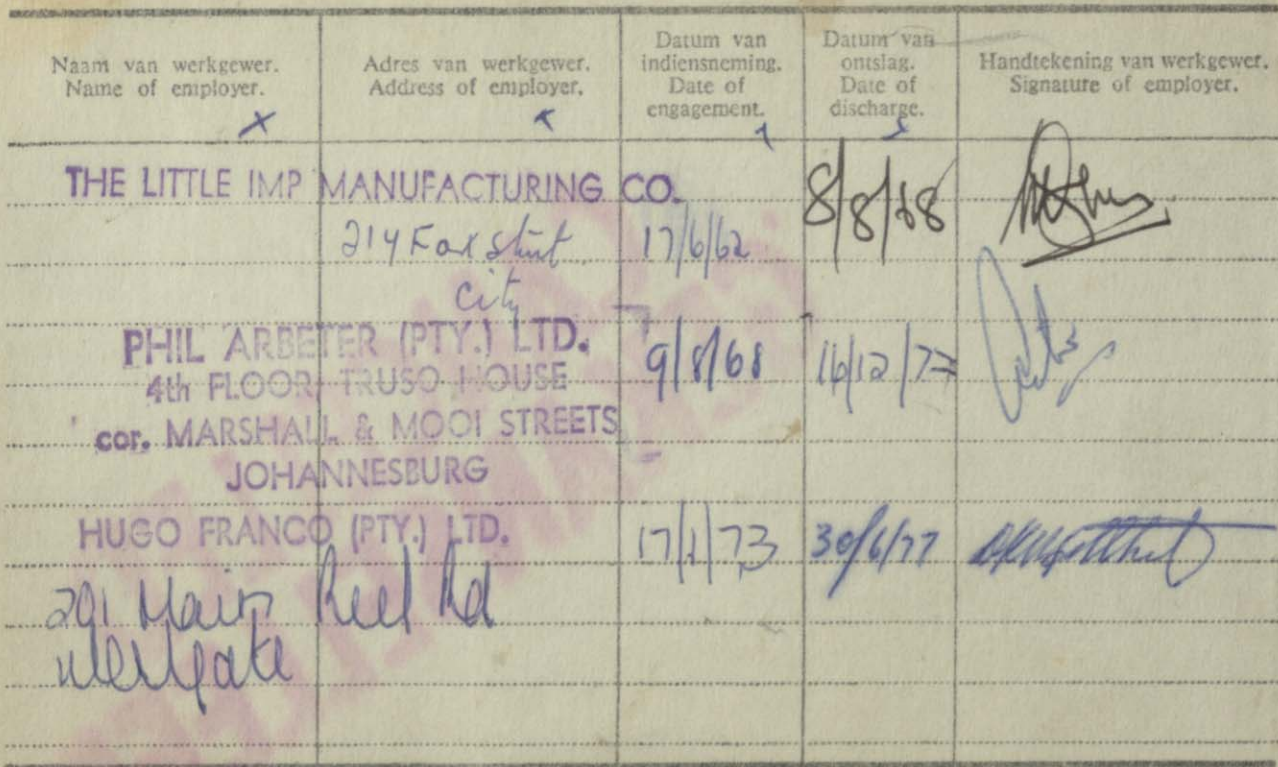 Naam van werkgewer.
Name of employer.
Adres van werkgewer.
Address of employer.
Datum van
indiensneming.
Date of
engagement.
Datum van
ontslag.
Date of
discharge.
Handtekening van werkgewer.
Signature of employer.
THE LITTLE IMP MANUFACTURING CO.
8/8/68
214 Fox Street 17/6/62
City
PHIL ARBETER (PTY.) LTD.
9/8/68 16/12/72
4th FLOOR TRUSO HOUSE
cor. MARSHALL & MOOI STREETS
JOHANNESBURG
HUGO FRANCO (PTY.) LTD.
17/1/73 30/6/77
291 Main Reef Rd
Westgate